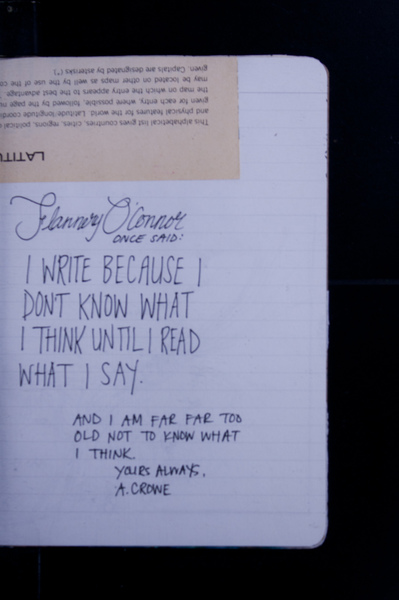 This alphabetical list gives countries, cities, regions, political
and physical features for the world. Latitude-longitude
given for each entry, where possible, followed by the page
the map on which the entry appears to the best
may be located on other maps as well by the use of the
given. Capitals are designated by asterisks (*)
Flannery O'Connor
ONCE SAID:
I WRITE BECAUSE I
DONT KNOW WHAT
I THINK UNTIL I READ
WHAT I SAY.
AND I AM FAR FAR TOO
OLD NOT TO KNOW WHAT
I THINK.
YOURS ALWAYS,
A. CROWE